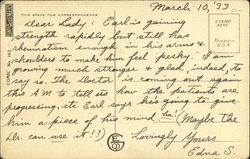 March 10, '33
THIS SPACE FOR CORRESPONDENCE
Dear Lady: Earl is gaining
strength rapidly but still has
rheumatism enough in his arms &
shoulders to make him feel perky. I am
growing much stronger & glad, indeed, to
say so. The doctor is coming out again
this A M to tell us how the patients are
progressing, etc Earl says he's going to give
him a piece of his mind, too! (Maybe the
Dr. can use it!?)
Lovingly Yours
Edna S.
STAMP
HERE
U.S.A.